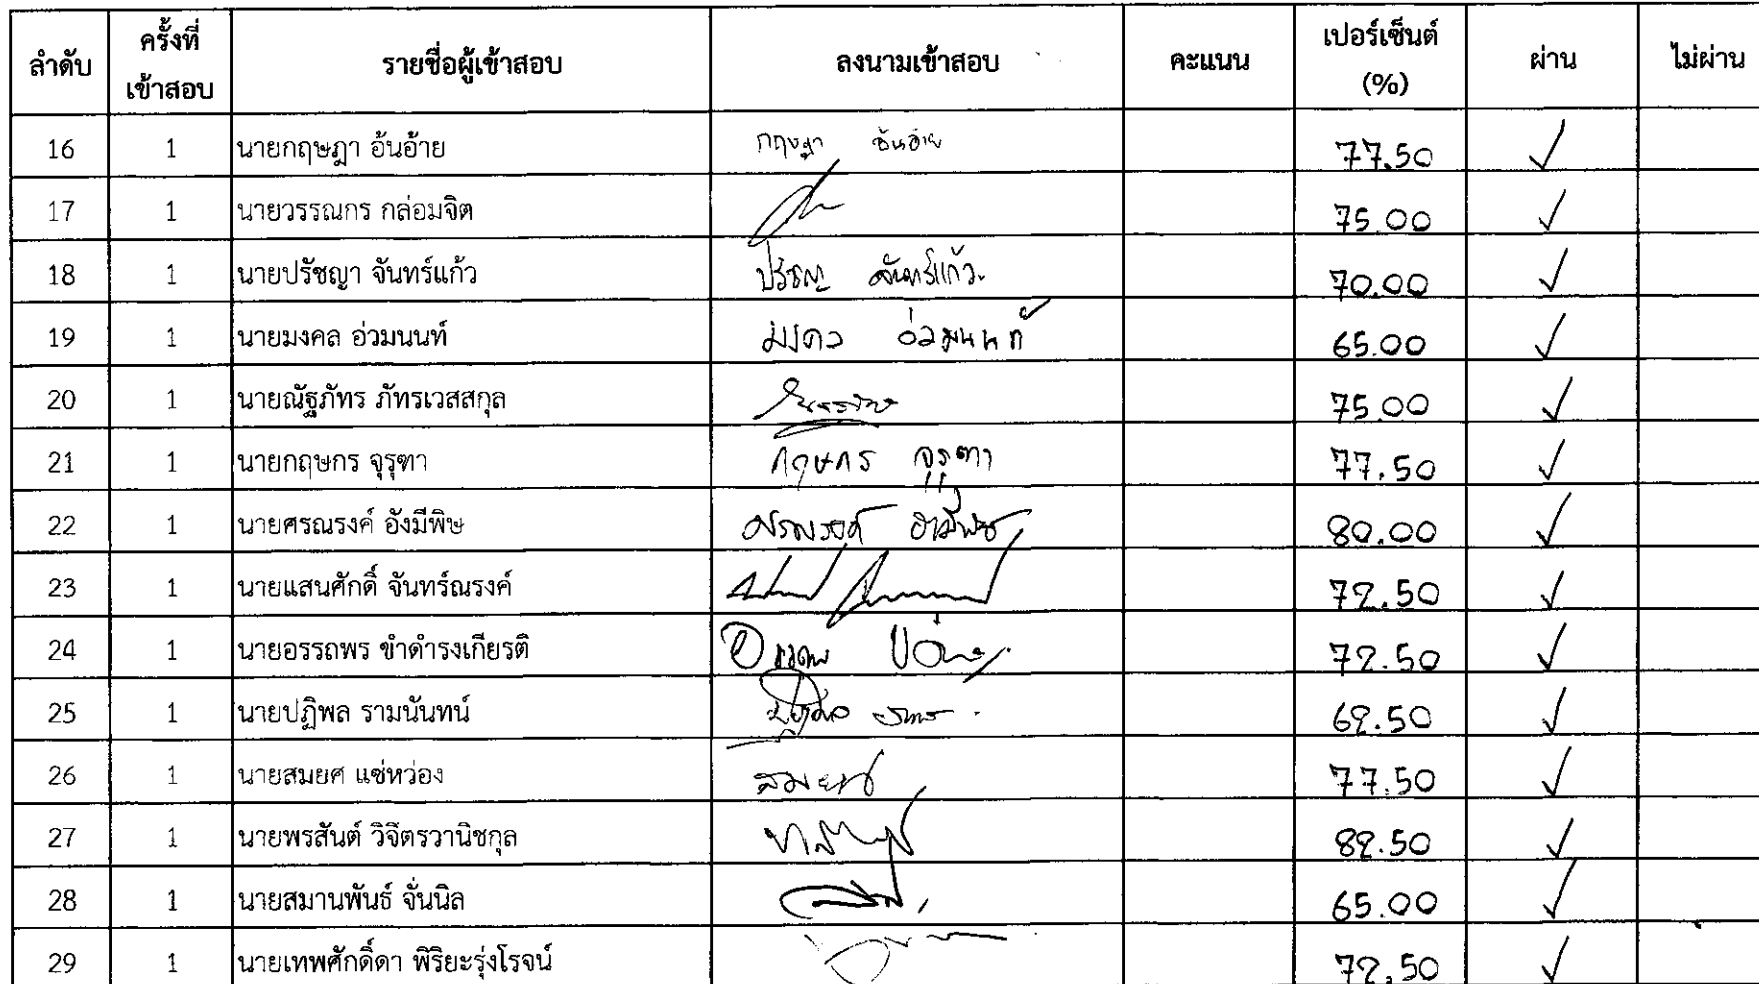 ลำดับ ครั้งที่เข้าสอบ รายชื่อผู้เข้าสอบ ลงนามเข้าสอบ คะแนน เปอร์เซ็นต์ (%) ผ่าน ไม่ผ่าน
16 1 นายกฤษฎา อ้นอ้าย กฤษฎา อ้นอ้าย 77.50 ✓
17 1 นายวรรณกร กล่อมจิต 75.00 ✓
18 1 นายปรัชญา จันทร์แก้ว ปรัชญา จันทร์แก้ว 70.00 ✓
19 1 นายมงคล อ่วมนนท์ มงคล อ่วมนนท์ 65.00 ✓
20 1 นายณัฐภัทร ภัทรเวสสกุล 75.00 ✓
21 1 นายกฤษกร จุรุฑา กฤษกร จุรุฑา 77.50 ✓
22 1 นายศรณรงค์ อังมีพิษ ศรณรงค์ อังมีพิษ 80.00 ✓
23 1 นายแสนศักดิ์ จันทร์ณรงค์ 72.50 ✓
24 1 นายอรรถพร ขำดำรงเกียรติ 72.50 ✓
25 1 นายปฏิพล รามนันทน์ 62.50 ✓
26 1 นายสมยศ แซ่หว่อง สมยศ 77.50 ✓
27 1 นายพรสันต์ วิจิตรวานิชกุล 82.50 ✓
28 1 นายสมานพันธ์ จั่นนิล 65.00 ✓
29 1 นายเทพศักดิ์ดา พิริยะรุ่งโรจน์ 72.50 ✓